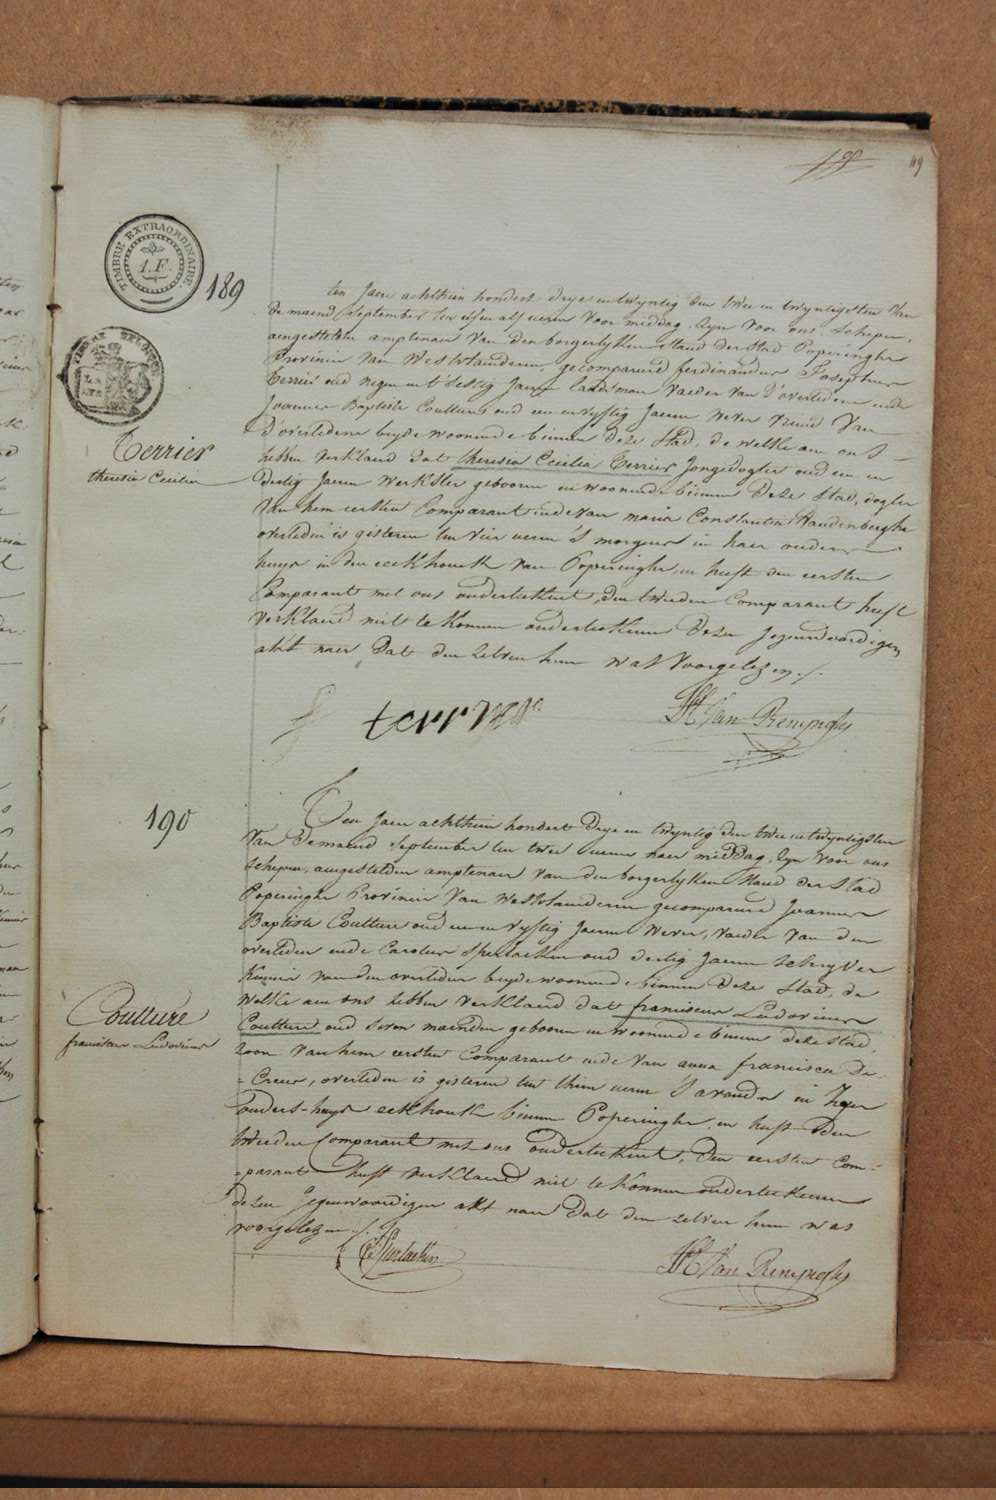 119
TIMBRE EXTRAORDINAIRE
1.F.
189
ten Jaere achthien hondert drye en twyntig den twee en twyntigsten van
de maend September ten elf en alf ueren voor middag, Zyn voor ons Schepen,
aengestelden amptenaer van den borgerlyken Stand der Stad Poperinghe
Provincie van Westvlaenderen, gecompareerd ferdinandus Josephus
Terrier oud negen en t'sestig Jaeren landsman vaeder van d'overledene ende
Joannes Baptiste Coutture oud een en vyftig Jaeren wever vriend van
d'overledene beyde woonende binnen deze Stad, de welke aen ons
hebben verklaerd dat theresia Cecilia Terrier Jongedogter oud een en
dertig Jaeren werkster gebooren en woonende binnen deze Stad, dogter
van hem eersten Comparant ende van maria Constantia Vandenberghe
overleden is gisteren ten vier ueren 's morgens in haer ouders
huys in den eekhoutk van Poperinghe, en heeft den eersten
Comparant met ons onderteekent, den tweeden Comparant heeft
verklaerd niet te konnen onderteekenen dezen Jegenwoordigen
akt naer dat den zelven hem was voorgelezen ./.
Terrier
theresia Cecilia
190
Den Jaere achthien hondert drye en twyntig den twee en twyntigsten
van de maend September ten twee ueren naer middag, Zyn voor ons
schepen, aengestelden amptenaer van den borgerlyken Stand der Stad
Poperinghe Provincie van Westvlaenderen gecompareerd Joannes
Baptiste Coutture oud een en vyftig Jaeren wever, vaeder van den
overleden ende Carolus oud dertig Jaeren schryver
Kennis van den overleden beyde woonende binnen deze Stad, de
Welke aen ons hebben verklaerd dat franciscus Ludovicus
Coutture oud seven maenden gebooren en woonende binnen deze stad,
zoon van hem eersten Comparant ende van anna francisca De-
-Creus, overleden is gisteren ten thien ueren s'avonds in Zyn
ouders-huys eekhoutk binnen Poperinghe, en heeft den
tweeden Comparant met ons onderteekent, den eersten Com-
-parant heeft verklaerd niet te konnen onderteekenen
dezen Jegenwoordigen akt naer dat den zelven hem was
voorgelezen ./.
Coutture
franciscus Ludovicus